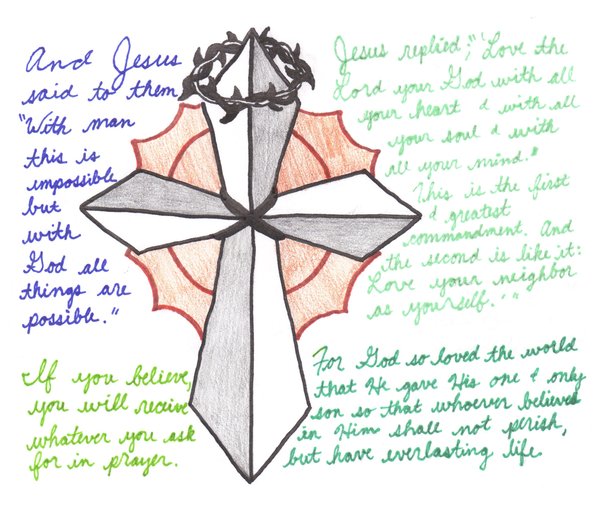 And Jesus
said to them
"With man
this is
impossible
but
with
God all
things are
possible."
Jesus replied; "'Love the
Lord your God with all
your heart & with all
your soul & with
all your mind."
This is the first
& greatest
commandment. And
the second is like it:
Love your neighbor
as yourself.'"
"If you believe,
you will receive
whatever you ask
for in prayer.
For God so loved the world
that He gave His one & only
son so that whoever believed
in Him shall not perish,
but have everlasting life.